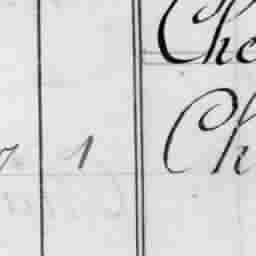 Che
7 1 Ch